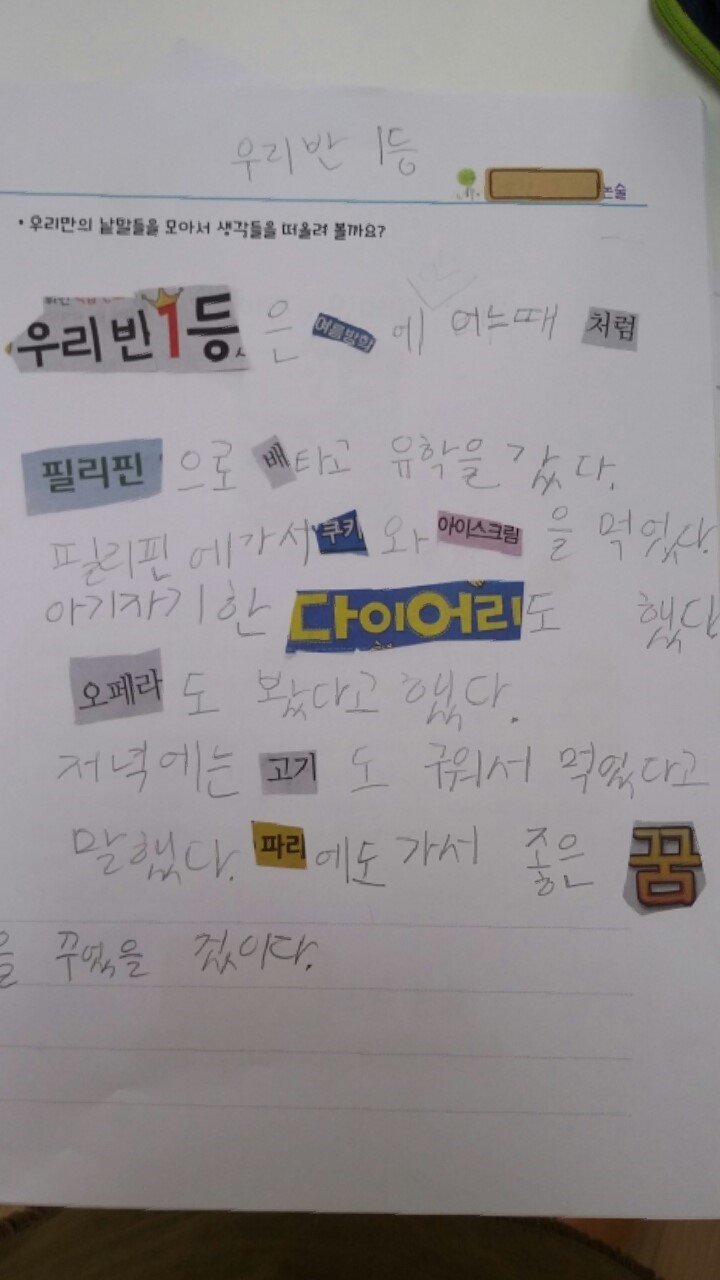 우리반 1등
논술
• 우리만의 낱말들을 모아서 생각들을 떠올려 볼까요?
우리반 1등 은 여름방학 에 어느때 처럼
필리핀 으로 배 타고 유학을 갔다.
필리핀에가서 쿠키 와 아이스크림 을 먹었다.
아기자기한 다이어리 도 했다
오페라 도 봤다고 했다.
저녁에는 고기 도 구워서 먹었다고
말했다. 파리 에도 가서 좋은 꿈
을 꾸었을 겄이다.